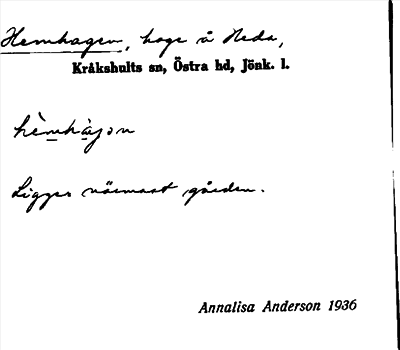 Hemhagen, hage å Heda,
Kråkshults sn, Östra hd, Jönk. l.
hèmhàgən
Ligger närmast gården.
Annalisa Anderson 1936